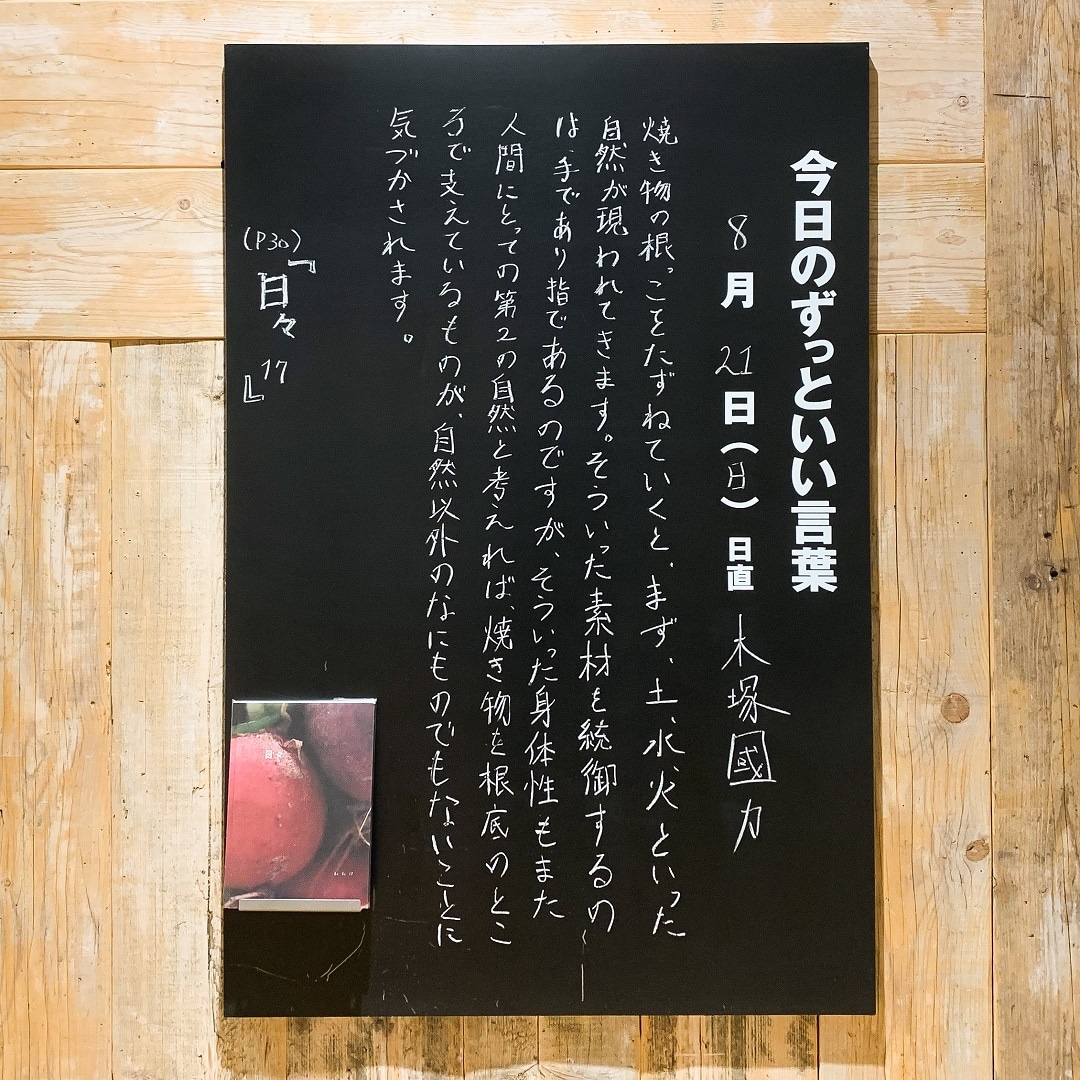 今日のずっといい言葉
8月21日(日) 日直 木塚國力
焼き物の根っこをたずねていくと、まず、土、水、火といった
自然が現われてきます。そういった素材を統御するの
は、手であり指であるのですが、そういった身体性もまた
人間にとっての第2の自然と考えれば、焼き物を根底のとこ
ろで支えているものが、自然以外のなにものでもないことに
気づかされます。
『日々 17』
(P30)
日々